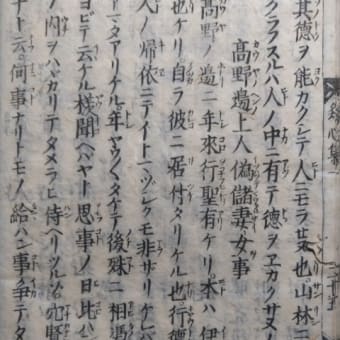 發心集一
其德ヲ能カクシテ人ニモラ也山林ニ
クラフスルハ人ノ中ニ有テ德ヲヱカクサヌノ
高野邊上人偽儲妻女事
髙野ノ邊ニ年來行聖有ケリ本ハ伊
也ケリ自ラ彼ニ居付タリケル也行德
人ノ帰依ニテイトシクモ非サリ
マタアリケル年ヤウ〱タケテ後殊ニ相馮
ヨビテ云ケル樣聞ヘバヤト思事ノ日比ハ
ノ内ヲハヾカリテタメラヒ侍ヘリツル穴賢
テト云何事ナリトモノ給ハン事爭テタ